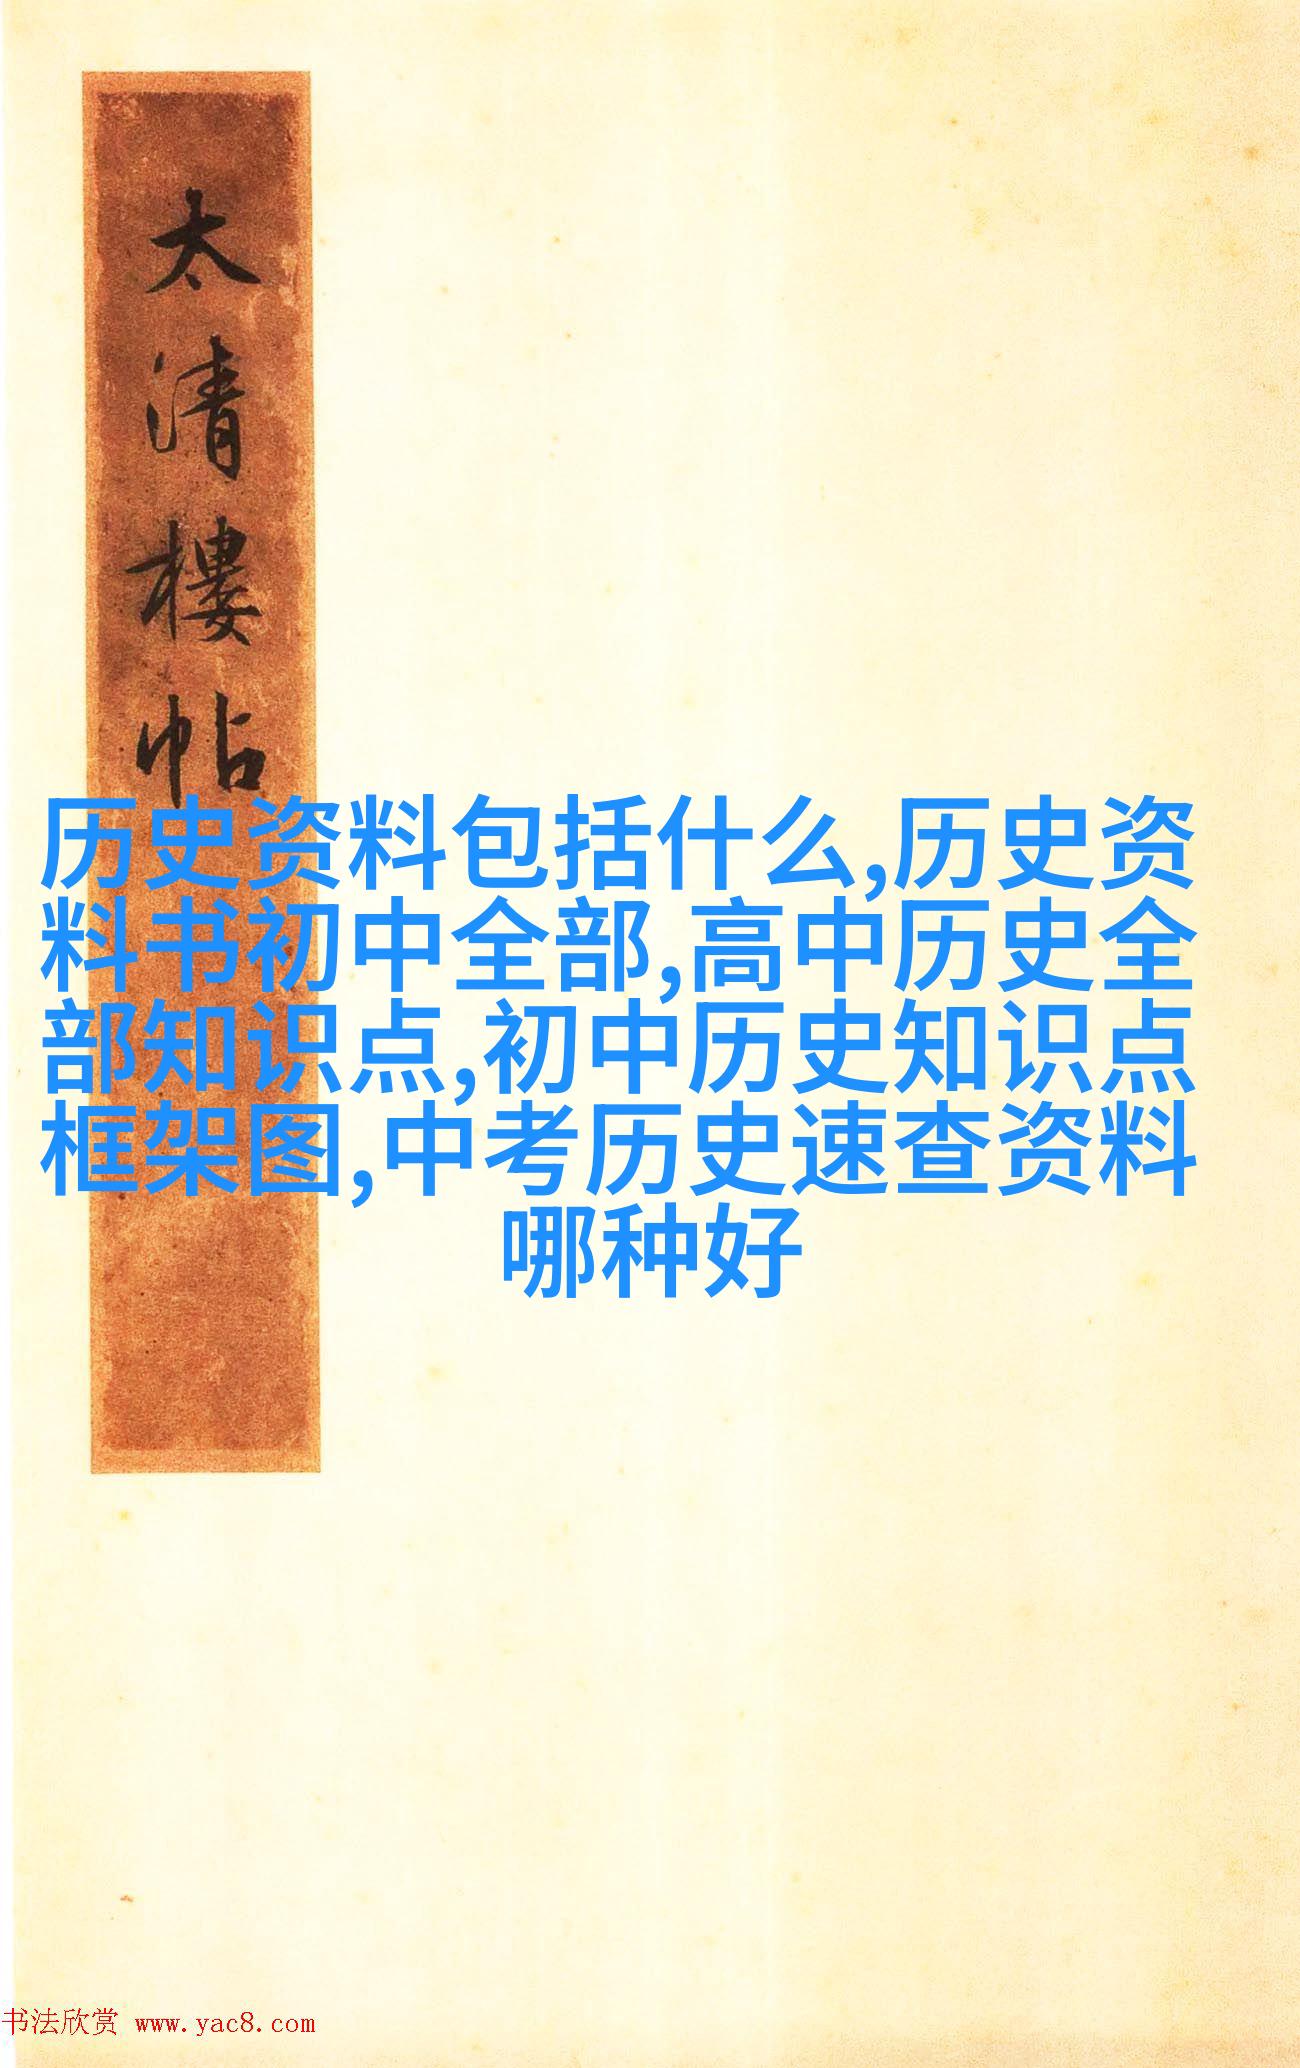 太清樓帖
历史资料包括什么,历史资
料书初中全部,高中历史全
部知识点,初中历史知识点
框架图,中考历史速查资料
哪种好
书法欣赏 www.yac8.com